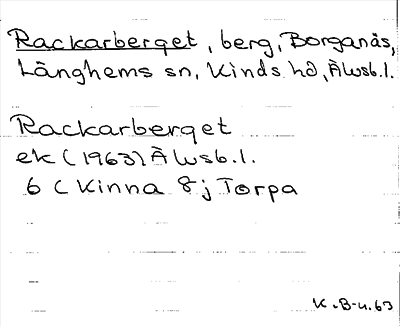 Rackarberget, berg, Borganäs,
Länghems sn, Kinds hd, Älvsb. l.
Rackarberget
ek (1963) Älvsb. l.
6 C Kinna 8 j Torpa
K.B-u. 63